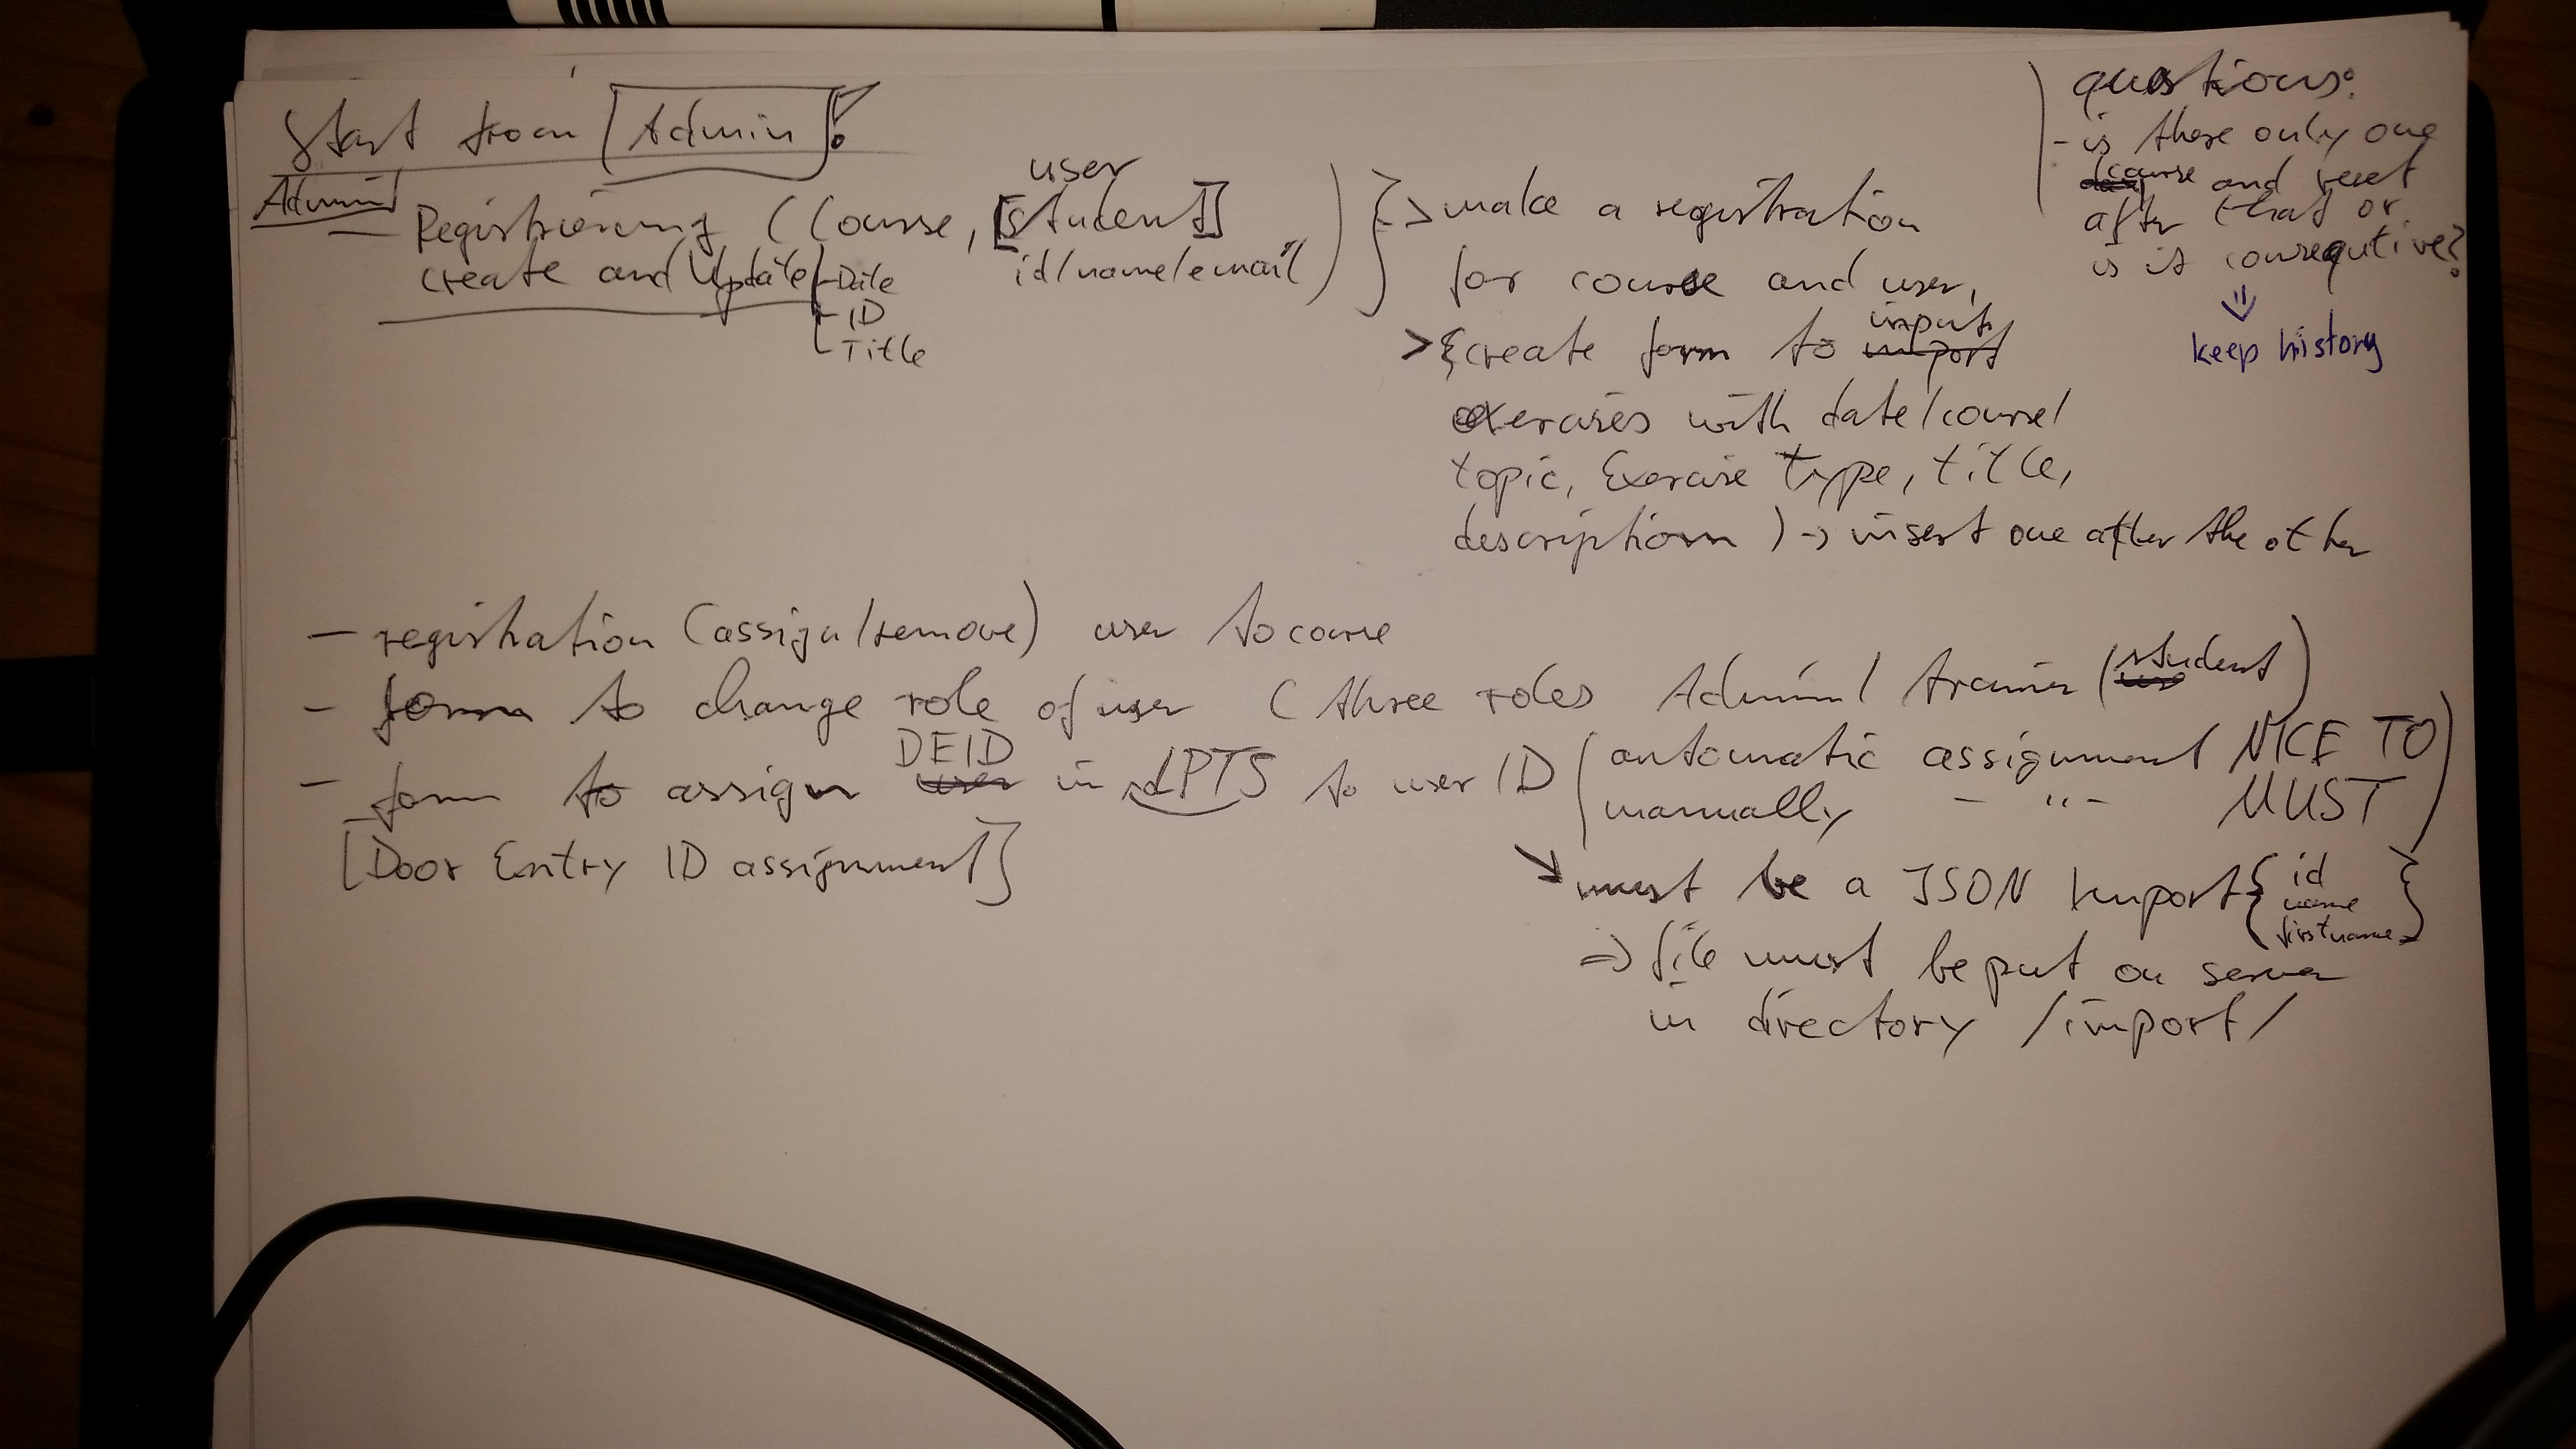 Start from [Admin]!
Admin
user
- Registriering (Course, [student]
create and Update
- Date
- ID
- Title
id/name/email)
} > make a registration
for course and user,
input
> {create form to import
exercises with date/course/
topic, Exercise type, title,
description) -> insert one after the other
questions:
- is there only one
course and reset
after that or
is it consequtive?
⇓
keep history
- registration (assign/remove) user to course
- form to change role of user (three roles Admin/ trainer/student)
DEID
- form to assign user in LPTS to user ID (automatic assignment NICE TO
manually - " - MUST)
[Door Entry ID assignment]
↘ must be a JSON Import { id
name
firstname }
=> file must be put on server
in directory /import/